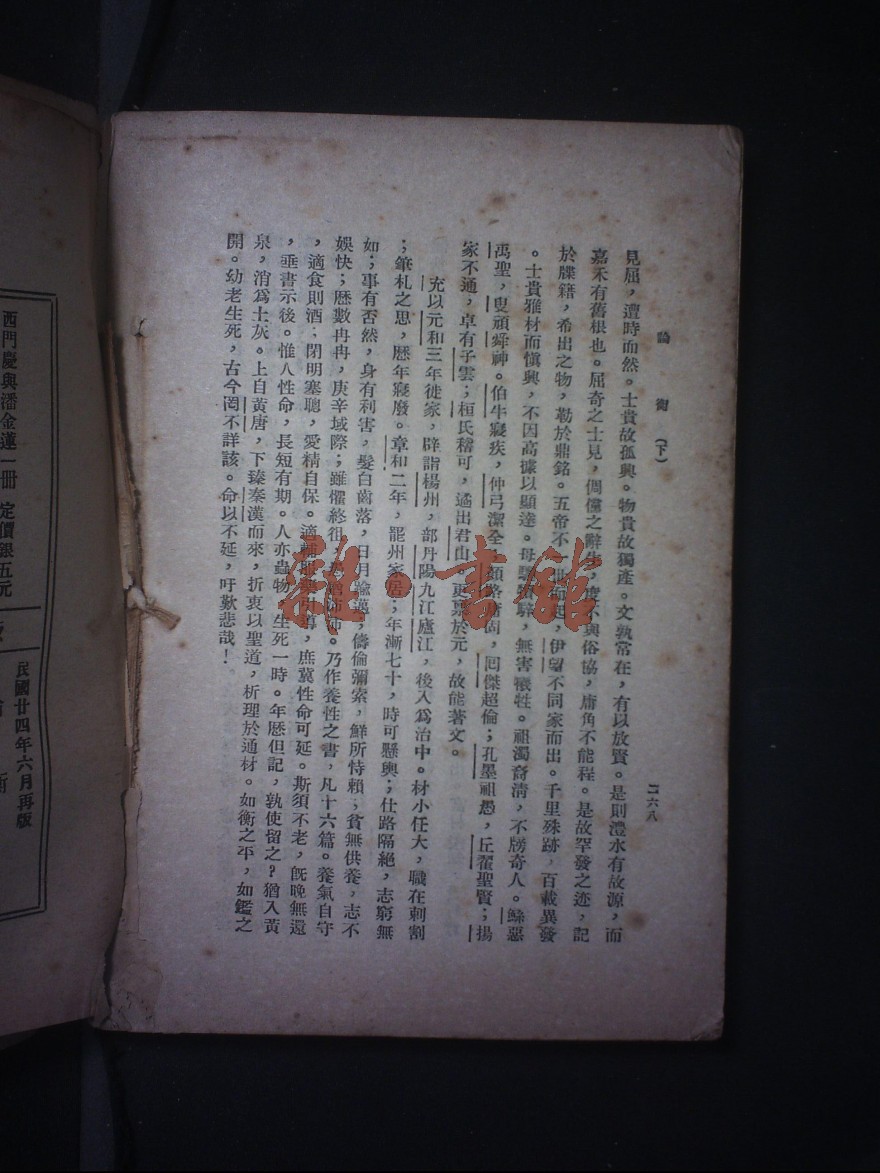 論衡（下）
二六八
見屈，遭時而然。士貴故孤興。物貴故獨產。文孰常在，有以放賢。是則澧水有故源，而
嘉禾有舊根也。屈奇之士見，倜儻之辭生，度不與俗協，庸角不能程。是故罕發之迹，記
於牒籍，希出之物，勒於鼎銘。五帝不一世而起，伊望不同家而出。千里殊跡，百載異發
。士貴雅材而慎興，不因高據以顯達。母驪犢騂，無害犧牲。祖濁裔清，不牓奇人。鯀惡
禹聖，叟頑舜神。伯牛寢疾，仲弓潔全。顏路庸固，回傑超倫；孔墨祖愚，丘翟聖賢；揚
家不通，卓有子雲；桓氏稽可，遹出君山。更稟於元，故能著文。
充以元和三年徙家，辟詣楊州，部丹陽九江廬江，後入爲治中。材小任大，職在刺割
；筆札之思，歷年寢廢。章和二年，罷州家居；年漸七十，時可懸輿；仕路隔絕，志窮無
如；事有否然，身有利害，髮白齒落，日月踰邁，儔倫彌索，鮮所恃賴；貧無供養，志不
娛快；歷數冉冉，庚辛域際；雖懼終徂，愚猶沛沛。乃作養性之書，凡十六篇。養氣自守
，適食則酒；閉明塞聰，愛精自保。適輔服藥引導，庶冀性命可延。斯須不老，既晚無還
，垂書示後。惟人性命，長短有期。人亦蟲物，生死一時。年歷但記，孰使留之？猶入黃
泉，消爲土灰。上自黃唐，下臻秦漢而來，折衷以聖道，析理於通材。如衡之平，如鑑之
開。幼老生死，古今罔不詳該。命以不延，吁歎悲哉！
雜·書館
民國廿四年六月再版
衡
西門慶與潘金蓮一冊 定價銀五元